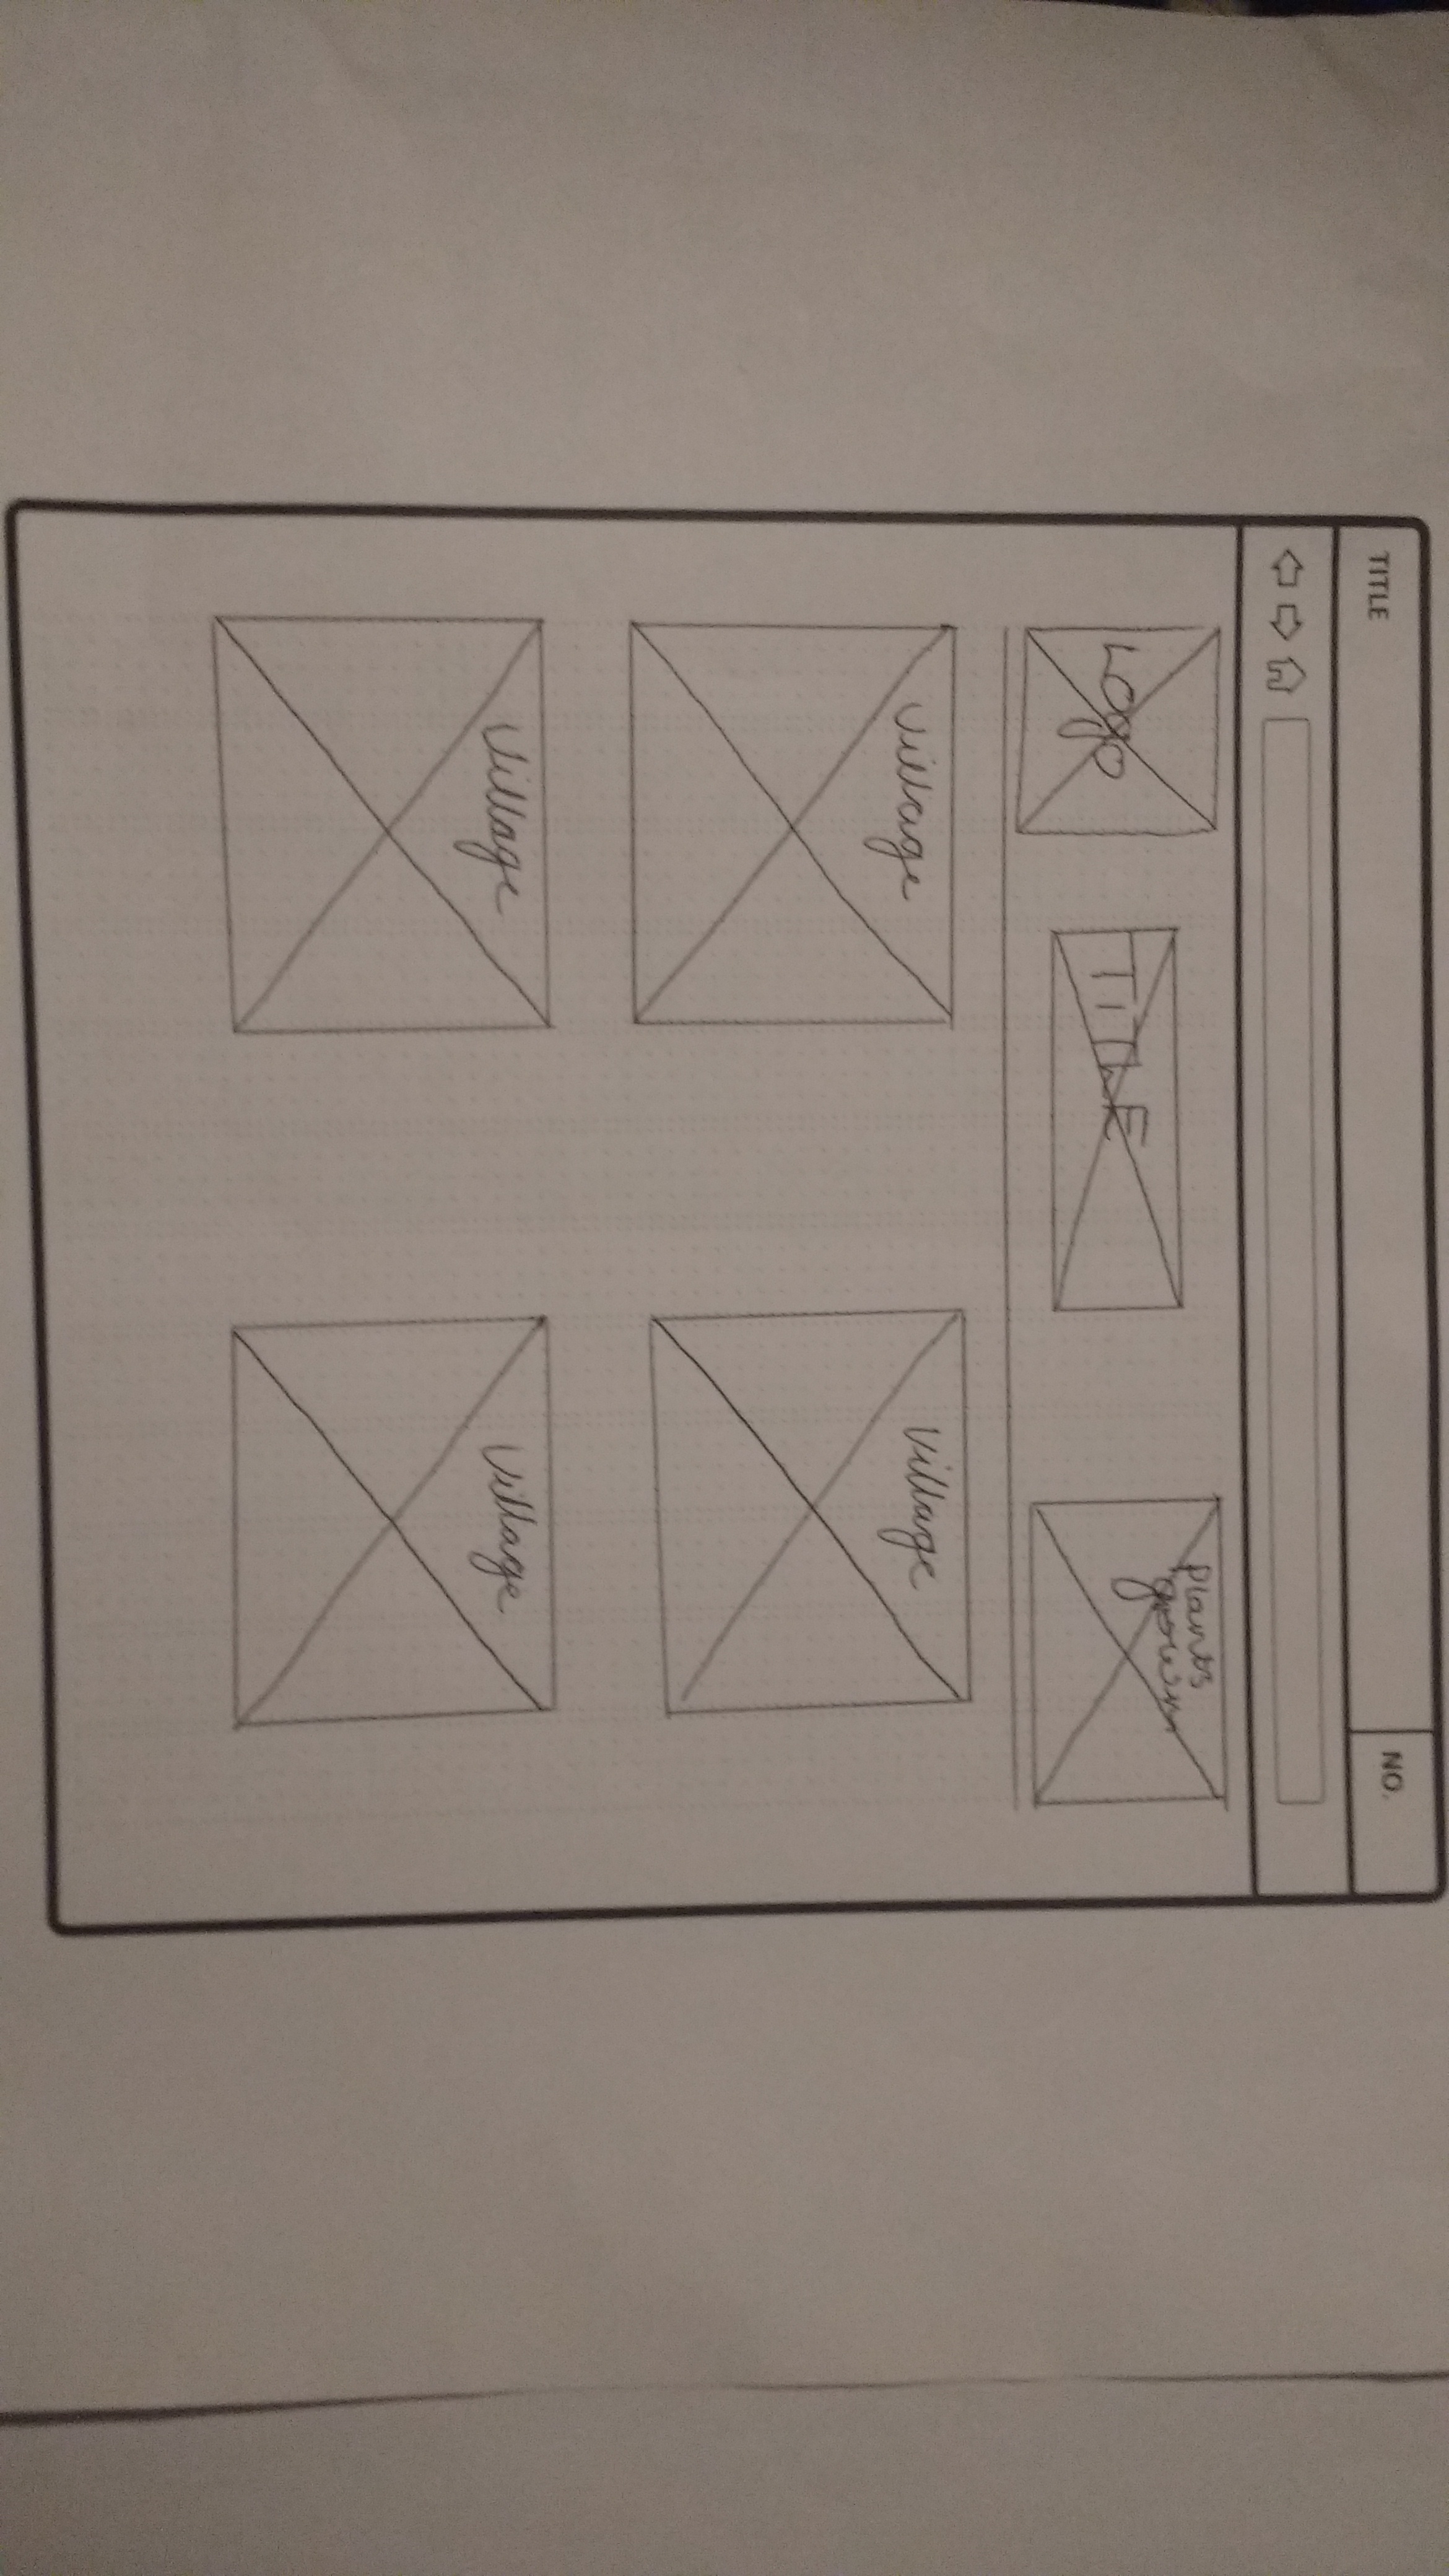 TITLE
NO.
Logo
TITLE
Plants
grown
Village
Village
Village
Village